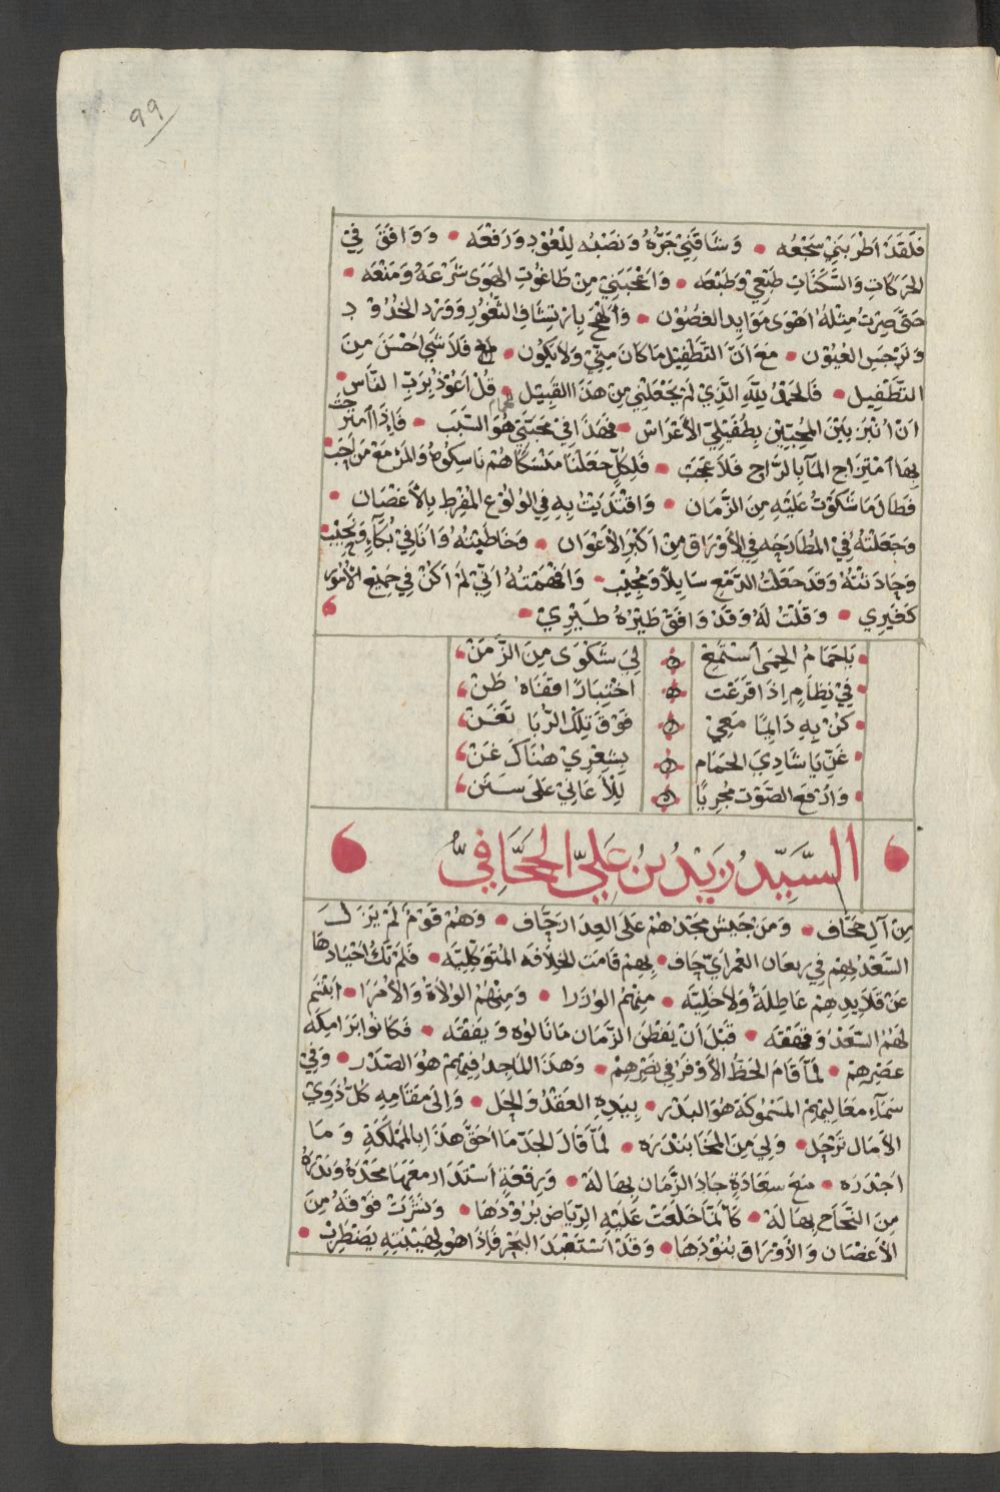 ٩٩
فَلَقَدْ اَطْرَبَنِيْ سَجْعُه • وَشَاقَنِيْ جَرُّهُ وَنَصْبُه لِلْعُوْدِ وَرَفْعَه • وَوَافَقَ فِيْ
الحَرَكَاتِ وَالسَّكَنَاتِ طَبْعِيْ وَطَبْعَه • وَاَعْجَبَنِيْ مِنْ طَاغُوْتِ الهَوَى شَرْعَهُ وَمَنْعَه •
حَتَّى صِرْتُ مِثْلَهُ اَهْوَى مَوَايِد الغصُوْن • وَاَلْهَجَ بِارْتِشَافِ الثُّغُوْرِ وَوَرْد الخدُوْدِ
وَنَرْجِسِ العُيُوْن • مَعَ اَنَّ التَّطْفِيْل مَا كَانَ مِنِّيْ وَلَايَكُوْن • فَلَا شَيْ اَحْسَنَ مِنَ
التَّطْفِيل • فَالحَمْدُ لِلَّهِ الَّذِيْ لَمْ يَجْعَلْنِي مِنْ هَذَا القَبِيْل • قُلْ اَعُوْذُ بِرَبِّ النَّاسِ •
اَنْ اُنْبَزَ بَيْنَ المُحِبِّيْن بِطُفَيْلِيِّ الأَعْرَاسْ • فَهَذَا فِيْ مَحَبَّتِيْ هُوَ السَّبَبَ • فَإِذَا امْتَزَجْتُ
بِهَا اَمْتِزَاج المَآ بِالرَّاحِ فَلَا عَجَبَ • فَلِكُلٍّ جَعَلْنَا مَنْسَكًا هُمْ نَاسِكُوْهُ وَالمَرْءُ مَعَ مَنْ اَحَبَّ
فَطَالَ مَا شَكَوْتُ عَلَيْهِ مِنَ الزَّمَان • وَاقْتَدَيْتُ بِهِ فِي الوُلُوْعِ المُفْرِطِ بِالأَغْصَان •
وَجَعَلْتُهُ فِيْ المُطَارَحَه فِي الأَوْرَاقِ مِنْ اَكْبَر الأَعْوَان • وَخَاطَبْتُهُ وَاَنَا فِيْ بُكَآءٍ وَنَحِيْبْ •
وَحَادَثْتُهُ وَقَدْ جَعَلْتُ الدَّمْعَ سَايِلاً وَمُجِيْب • وَاَفْهَمْتُهُ اَنِّيْ لَمْ اَكُنْ فِي جَمِيْعِ الأُمُوْرِ
كَغَيْرِي • وَقُلْتُ لَهُ وَقَدْ وَافَقَ طَيْرُهُ طَيْرِيْ •
يَاحَمَامُ الحِمَى اسْتَمِعْ لِيَ شَكْوَى مِنَ الزَّمَنْ
فِيْ نِظَامٍ اِذَا قَرَعْتَ اخْتِبَارًا قَفَاهُ طَنْ
كُنْ بِهِ دَايِمًا مَعِيْ فَوْقَ تِلْكَ الرُّبَا تَغَنّْ
غَنِّ يَا شَادِيَ الحَمَام بِشِعْرِيْ هُنَاكَ غَنْ
وَارْفَعِ الصَّوْتَ مُجْرِيًا لِلأَغَانِيْ عَلَى سَنَن
السَّيِّدُ زَيْدُ بنُ عَلِيّ الجَحَّافِيُّ
مِنْ آلِ جَحَّاف • وَمَنْ جَيْشُ مَجْدِهُمْ عَلَى العِدَا رَجَّاف • وَهُمْ قَوْمٌ لَمْ يَزَلْ
السَّعْدُ بِهِمْ فِي رِيعَان العُمْرِ اَيّ حَاف • بِهِمْ قَامَتْ الخِلَافَه المُتَوَكِّلِيَّه • فَلَمْ تَكُ اَجْيَادُهَا
عَنْ قَلَايِدِ هِمْ عَاطِلَةٌ وَلَا خَلِيَّه • مِنْهُمُ الوُزَرَا • وَمِنْهُمُ الوُلَاةُ وَالأُمَرَا • اَبْتَسَمَ
لَهُمُ السَّعْدُ وَقَهْقَه • قَبْلَ اَنْ يَفْطَنَ الزَّمَان مَا نَالُوْه وَيَفْقَه • فَكَانُوا بَرَامِكَه
عَصْرِهِمْ • لَمَّا قَامَ الحَظُّ الأَوْفَرُ فِيْ نَصْرِهِمْ • وَهَذَا المَاجِدُ فِيْهُمْ هُوَ الصَّدْر • وَفِيْ
سَمَآءِ مَعَالِيْهِمْ المَسْمُوكَة هُوَ البَدْر • بِيَدِهِ العَقْدُ وَالحِلّ • وَاِلَى مَقَامِهِ كُلُّ ذَوِيْ
الآمَال تَرْحَل • وَلِيَ مِنَ المَخَا بَنْدَرَه • لَمَّا قَالَ الجَدّ مَا اَحَقَّ هَذَا بِالمَمْلَكَةِ وَمَا
اَجْدَرَه • مَعَ سَعَادَةٍ جَادَ الزَّمَان بِهَا لَهْ • وَرِفْعَةٍ اسْتَدَار مَعَهَا مَجْدُهُ وَبَدْرُهُ
مِنَ النَّجَاحِ بِهَالَهْ • كَاَنَّمَا خَلَعَتْ عَلَيْهِ الرِّيَاض بُرُوْدَهَا • وَنَشَرَتْ فَوْقَهُ مِنَ
الأَغْصَان وَالأَوْرَاقِ بُنُوْدَهَا • وَقَدْ اسْتَعْبَدَ البَحْرَ فَإِذَا هُوَ لِهَيْبَتِهِ يَضْطَرِبْ •